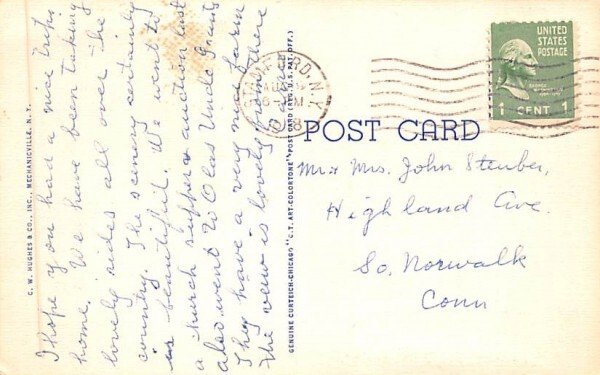 I hope you had a nice trip
home. We have been taking
lovely rides all over the
country. The scenery certainly
is beautiful. We went to
a church supper & auction last
also went to Olas Uncle
They have a very nice farm
The view is lovely from there
C. W. HUGHES & CO., INC., MECHANICVILLE, N. Y.
GENUINE CURTEICH-CHICAGO "C. T. ART-COLORTONE" POST CARD (REG. U. S. PAT. OFF.)
N.Y.
UNITED
STATES
POSTAGE
1 CENT 1
POST CARD
Mr & Mrs. John Steuber,
Highland Ave.
So. Norwalk
Conn